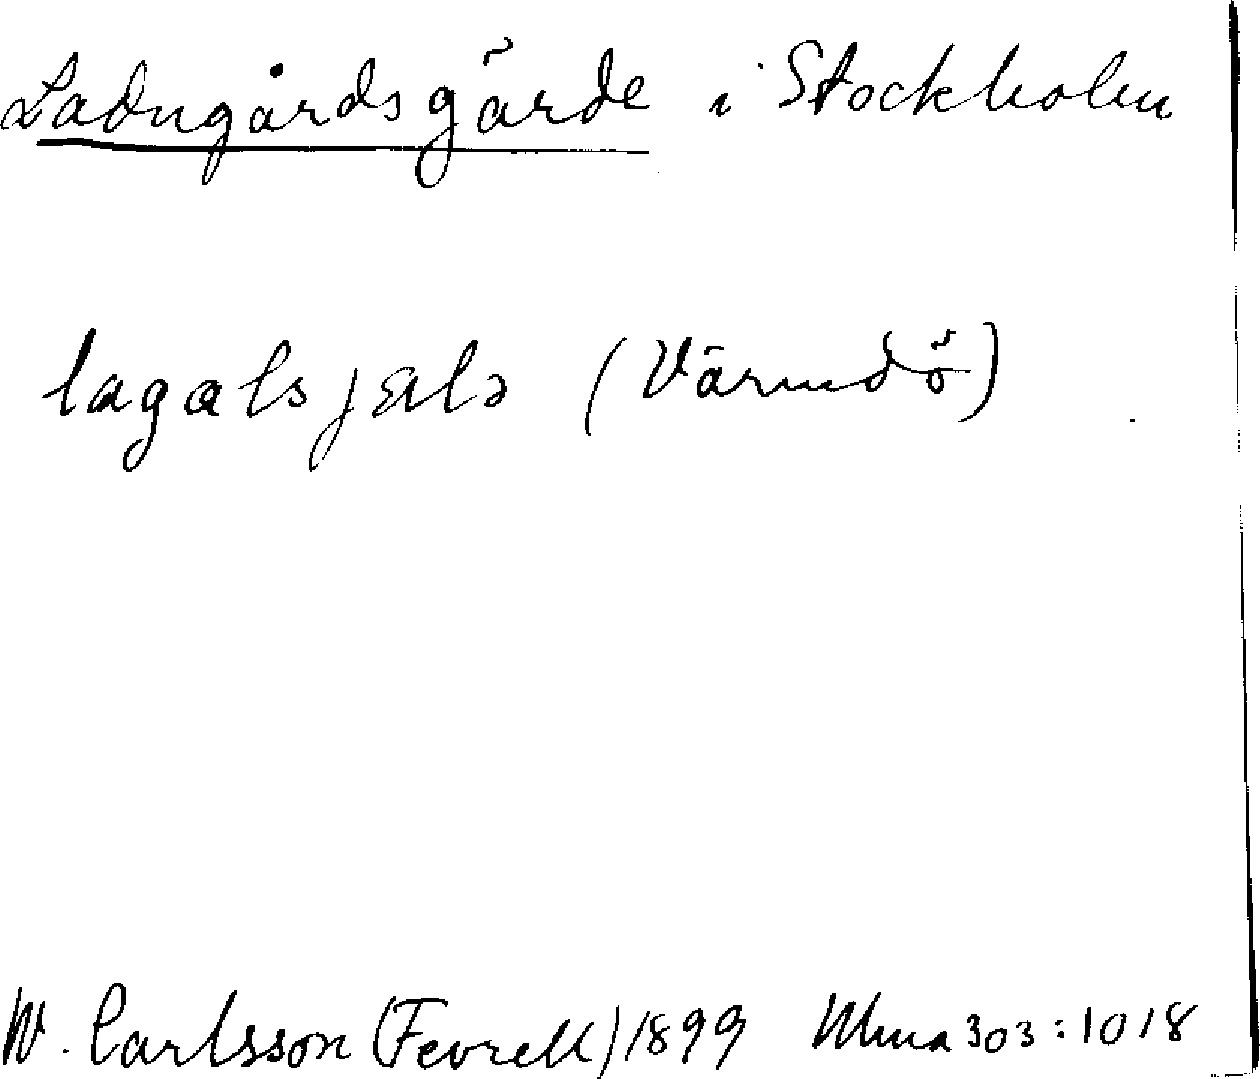 Ladugårdsgärde i Stockholm
lagalsjælə (Värmdö)
W. Carlsson (Fevrell) 1899 Ulma 303:1018